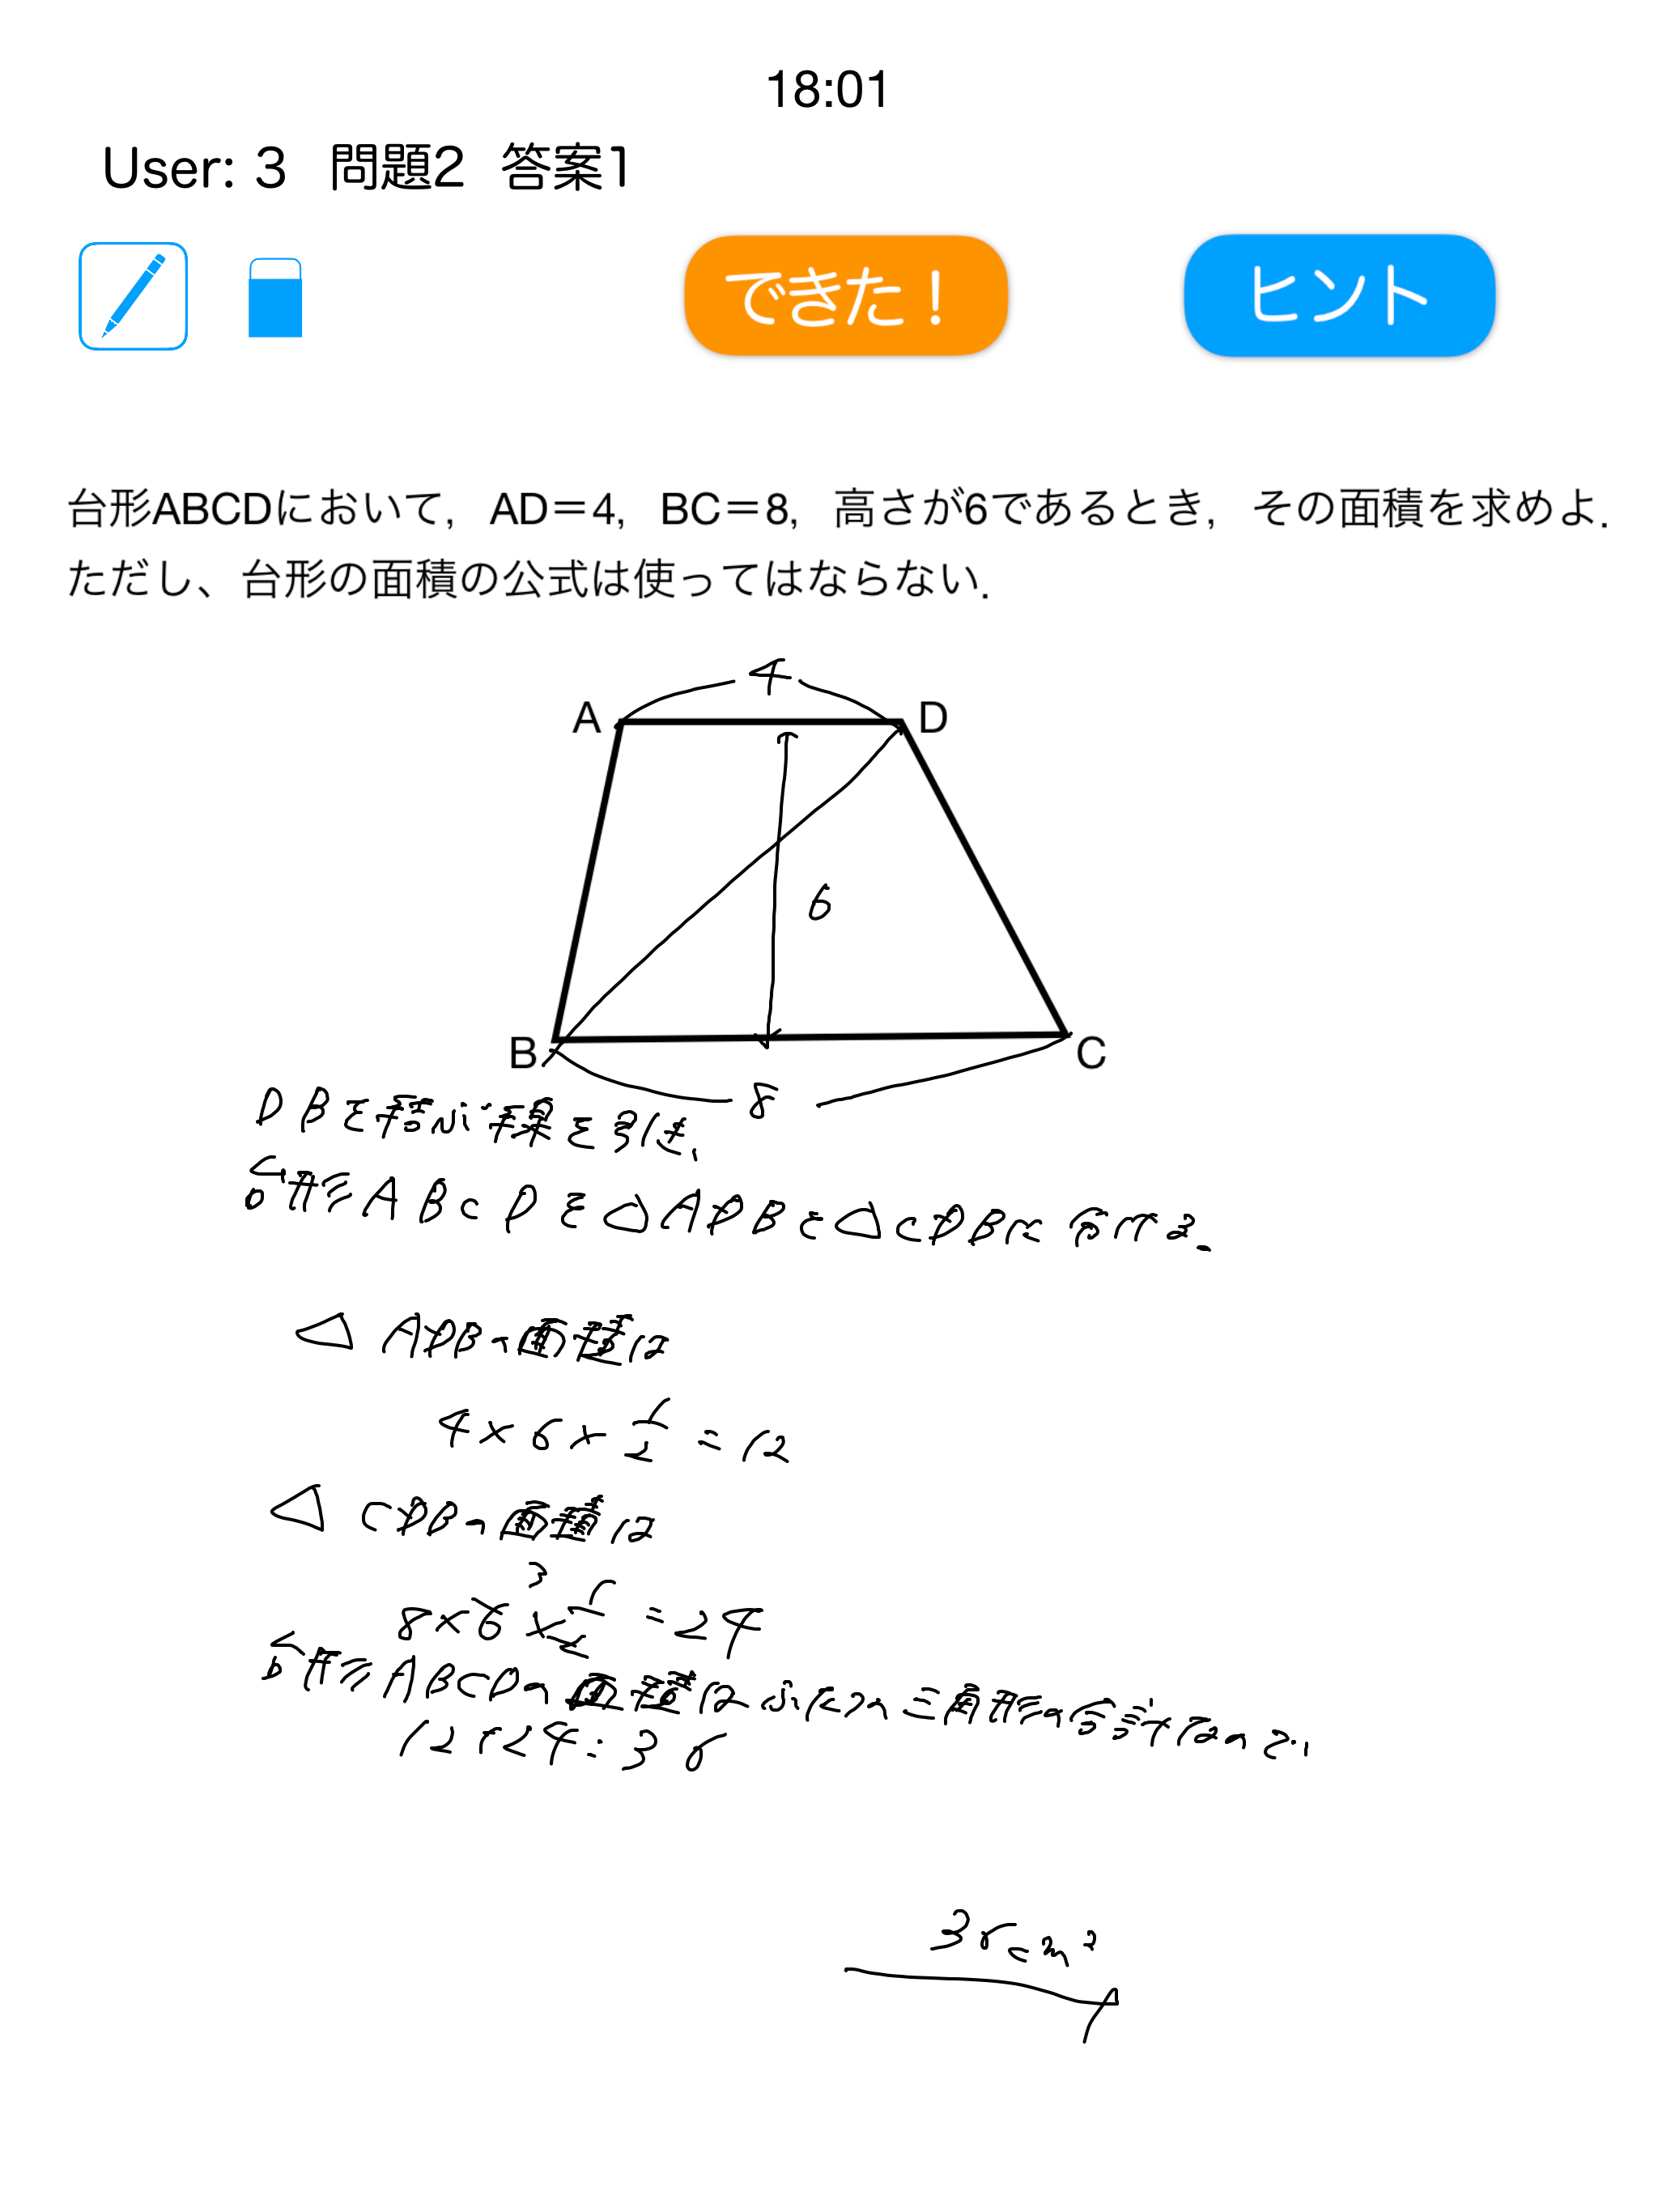 18:01
User: 3 問題2 答案1
できた！ ヒント
台形ABCDにおいて，AD＝4，BC＝8，高さが6であるとき，その面積を求めよ．
ただし、台形の面積の公式は使ってはならない．
4
A D
6
B C
8
DBを結ぶ線を引き、
台形ABCDを△ADBと△CDBに分ける。
△ADBの面積は
4×6×1/2=12
△CDBの面積は
3
8×6×1/2=24
台形ABCDの面積はふたつの三角形の合計なので、
12+24=36
36cm²